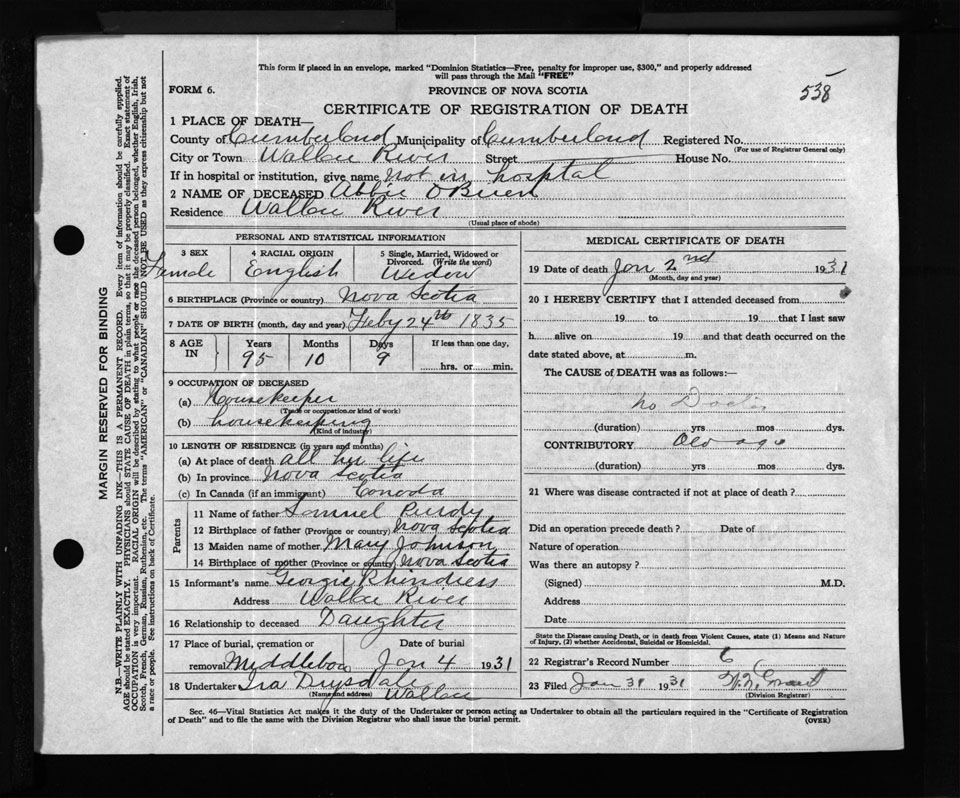 This form if placed in an envelope, marked "Dominion Statistics—Free, penalty for improper use, $300," and properly addressed
will pass through the Mail "FREE"
FORM 6.
PROVINCE OF NOVA SCOTIA
538
CERTIFICATE OF REGISTRATION OF DEATH
1 PLACE OF DEATH—
County of Cumberland Municipality of Cumberland Registered No.
(For use of Registrar General only)
City or Town Wallace River Street House No.
If in hospital or institution, give name not in hospital
2 NAME OF DECEASED Abbie O'Brien
Residence Wallace River
(Usual place of abode)
PERSONAL AND STATISTICAL INFORMATION
3 SEX
Female
4 RACIAL ORIGIN
English
5 Single, Married, Widowed or
Divorced. (Write the word)
Widow
6 BIRTHPLACE (Province or country) Nova Scotia
7 DATE OF BIRTH (month, day and year) Feby 24th 1835
8 AGE
IN
Years
95
Months
10
Days
9
If less than one day,
hrs. or min.
9 OCCUPATION OF DECEASED
(a) Housekeeper
(Trade or occupation or kind of work)
(b) housekeeping
(Kind of industry)
10 LENGTH OF RESIDENCE (in years and months)
(a) At place of death all her life
(b) In province Nova Scotia
(c) In Canada (if an immigrant) Canada
Parents
11 Name of father Samuel Purdy
12 Birthplace of father (Province or country) Nova Scotia
13 Maiden name of mother Mary Johnson
14 Birthplace of mother (Province or country) Nova Scotia
15 Informant's name Georgie Rhindress
Address Wallace River
16 Relationship to deceased Daughter
17 Place of burial, cremation or
Date of burial
removal Middleboro Jan 4 1931
18 Undertaker Ira Drysdale
(Name and address) Wallace
MEDICAL CERTIFICATE OF DEATH
19 Date of death Jan 2nd 1931
(Month, day and year)
20 I HEREBY CERTIFY that I attended deceased from
19 to 19 that I last saw
h alive on 19 and that death occurred on the
date stated above, at m.
The CAUSE of DEATH was as follows:—
no Doctor
(duration) yrs mos dys.
CONTRIBUTORY Old age
(duration) yrs mos dys.
21 Where was disease contracted if not at place of death?
Did an operation precede death? Date of
Nature of operation
Was there an autopsy?
(Signed) M.D.
Address
Date
State the Disease causing Death, or in death from Violent Causes, state (1) Means and Nature
of Injury, (2) whether Accidental, Suicidal or Homicidal.
22 Registrar's Record Number 6
23 Filed Jan 31 1931
(Division Registrar)
Sec. 46—Vital Statistics Act makes it the duty of the Undertaker or person acting as Undertaker to obtain all the particulars required in the "Certificate of Registration
of Death" and to file the same with the Division Registrar who shall issue the burial permit.
(OVER)
MARGIN RESERVED FOR BINDING
N.B.—WRITE PLAINLY WITH UNFADING INK—THIS IS A PERMANENT RECORD. Every item of information should be carefully supplied.
AGE should be stated EXACTLY. PHYSICIANS should STATE CAUSE OF DEATH in plain terms, so that it may be properly classified. Exact statement of
OCCUPATION is very important. RACIAL ORIGIN will be described by stating to what people or race the deceased person belonged, whether English, Irish,
Scotch, French, German, Russian, Ruthenian, etc. The terms "AMERICAN" or "CANADIAN" SHOULD NOT BE USED as they express citizenship but not
a race or people. See instructions on back of Certificate.